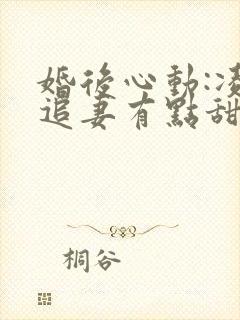 婚後心動:凌
追妻有點甜
桐谷